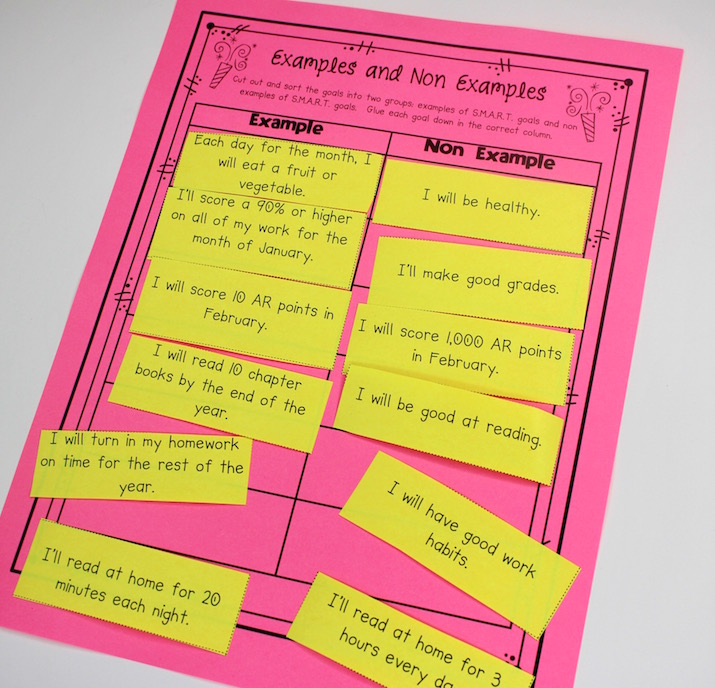 Examples and Non Examples
Cut out and sort the goals into two groups; examples of S.M.A.R.T. goals and non
examples of S.M.A.R.T. goals. Glue each goal down in the correct column.
Example
Non Example
Each day for the month, I
will eat a fruit or
vegetable.
I will be healthy.
I'll score a 90% or higher
on all of my work for the
month of January.
I'll make good grades.
I will score 10 AR points in
February.
I will score 1,000 AR points
in February.
I will read 10 chapter
books by the end of the
year.
I will be good at reading.
I will turn in my homework
on time for the rest of the
year.
I will have good work
habits.
I'll read at home for 20
minutes each night.
I'll read at home for 3
hours every